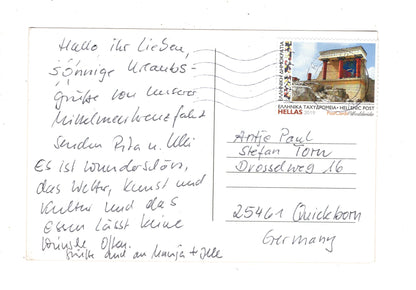 Hallo ihr Lieben,
sonnige Urlaubs-
grüße von unserer
Mittelmeerkreuzfahrt
senden Rita u. Uli
Es ist wunderschön,
das Wetter, Kunst und
Kultur und das
Essen lässt keine
Wünsche offen.
Grüße auch an
ΕΛΛΗΝΙΚΗ ΔΗΜΟΚΡΑΤΙΑ
HELLAS 2019
ΕΛΛΗΝΙΚΑ ΤΑΧΥΔΡΟΜΕΙΑ • HELLENIC POST
Worldwide
Antje Paul
Stefan Torn
Drosselweg 16
25451 Quickborn
Germany